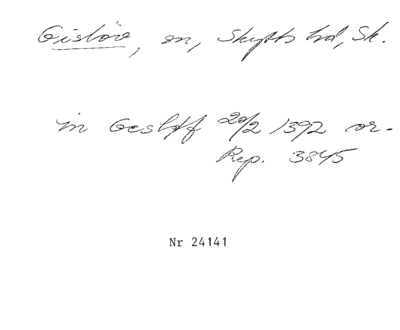 Gislöv, sn, Skytts hd, Sk.
in Gesløff 20/2 1392 or.
Rep. 3845
Nr 24141